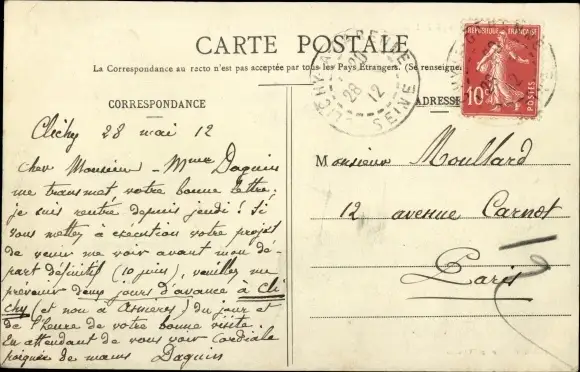 CARTE POSTALE
La Correspondance au recto n'est pas acceptée par tous les Pays Étrangers. (Se renseigner
CORRESPONDANCE
ADRESSE
RÉPUBLIQUE FRANÇAISE
10c
POSTES
CLICHY-LA-GARENNE
28
12
SEINE
Clichy 28 mai 12
Cher Monsieur - Mme Daguin
me transmet votre bonne lettre.
je suis rentré depuis jeudi ! Si
vous mettez à exécution votre projet
de venir me voir avant mon dé-
part définitif (10 juin), veuillez me
prévenir deux jours d'avance à Cli
chy (et non à Asnières) du jour et
de l'heure de votre bonne visite.
En attendant de vous voir cordiale
poignée de mains Daguin
Monsieur Moullard
12 avenue Carnot
Paris